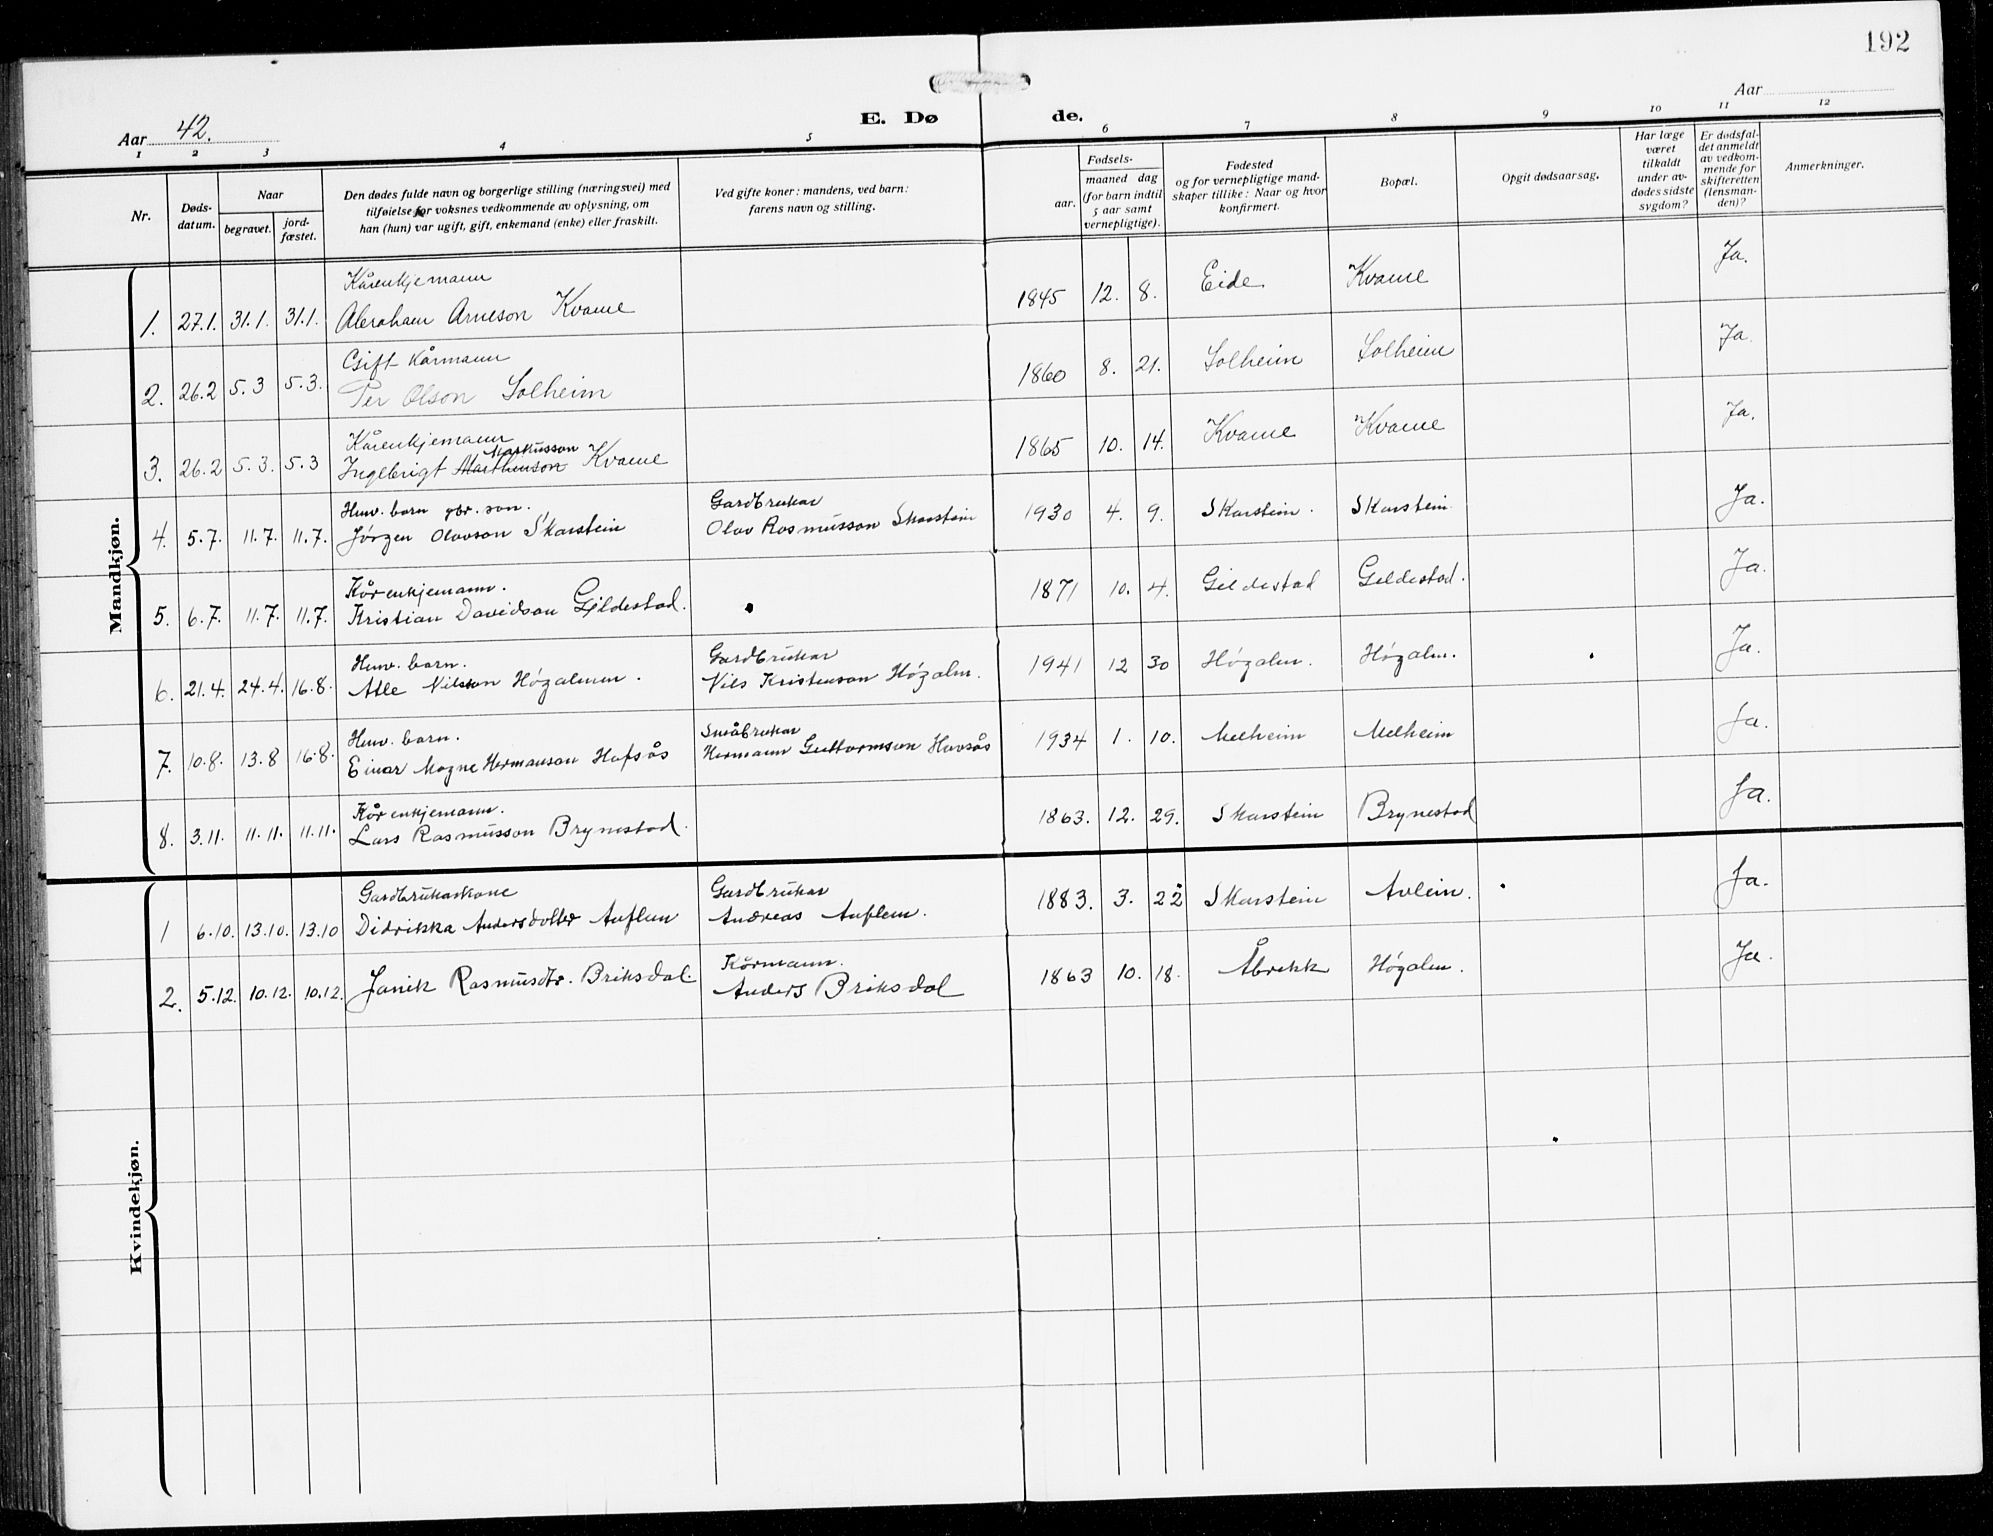 192
Aar 42.
E. Døde.
Aar
1 2 3 4 5 6 7 8 9 10 11 12
Nr.
Døds-
datum.
Naar
begravet.
jord-
fæstet.
Den dødes fulde navn og borgerlige stilling (næringsvei) med
tilføielse for voksnes vedkommende av oplysning, om
han (hun) var ugift, gift, enkemand (enke) eller fraskilt.
Ved gifte koner: mandens, ved barn:
farens navn og stilling.
Fødsels-
aar.
maaned dag
(for barn indtil
5 aar samt
vernepligtige).
Fødested
og for vernepligtige mand-
skaper tillike: Naar og hvor
konfirmert.
Bopæl.
Opgit dødsaarsag.
Har læge
været
tilkaldt
under av-
dødes sidste
sygdom?
Er dødsfal-
det anmeldt
av vedkom-
mende for
skifteretten
(lensman-
den)?
Anmerkninger.
Mandkjøn.
Kårenkjemann
1. 27.1. 31.1. 31.1. Abraham Arneson Kvame 1845 12. 8. Eide Kvame Ja.
Gift kårmann
2. 26.2 5.3 5.3. Per Olson Solheim 1860 8. 21. Solheim Solheim Ja.
Kårenkjemann
Markusson
3. 26.2 5.3. 5.3 Ingebrigt Marthinson Kvame 1865 10. 14. Kvame Kvame Ja.
Heiv. barn gbr. son. Gardbrukar
4. 5.7. 11.7. 11.7. Jørgen Olavson Skarstein Olav Rasmusson Skarstein 1930 4. 9. Skarstein. Skarstein Ja.
Kårenkjemann.
5. 6.7. 11.7. 11.7. Kristian Davidson Gjldestad. 1871 10. 4. Gildestad Geldestad. Ja.
Heiv. barn. Gardbrukar
6. 21.4. 24.4. 16.8. Atle Nilson Høgalmen. Nils Kristenson Høgalm. 1941 12 30 Høgalm. Høgalm. Ja.
Heiv. barn. Småbrukar
7. 10.8. 13.8 16.8. Einar Magne Hermanson Hafsås Hermann Guttormson Havsås 1934 1. 10. Melheim Melheim Ja.
Kårenkjemann.
8. 3.11. 11.11. 11.11. Lars Rasmusson Brynestad. 1863. 12. 29. Skarstein Brynestad Ja.
Kvindekjøn.
Gardbrukarkone Gardbrukar
1 6.10. 13.10. 13.10 Didrikka Andersdotter Auflem Andreas Auflem. 1883. 3. 22 Skarstein Avlein. Ja.
Kårmann.
2. 5.12. 10.12. 10.12. Janik Rasmusdtr. Briksdal. Anders Briksdal 1863 10. 18. Åbrekk Høgalm. Ja.